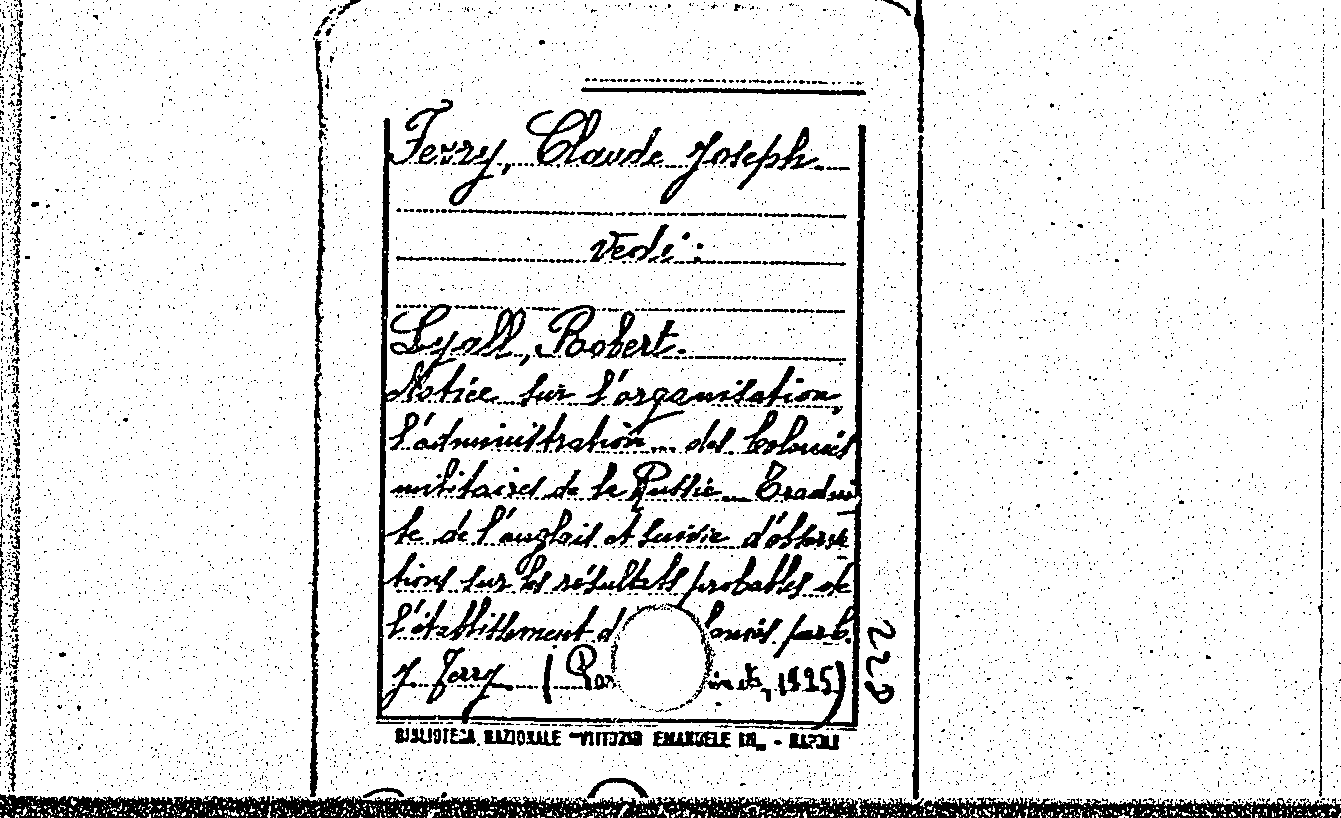 Ferry, Claude Joseph
Vedi:
Lyall, Robert.
Notice sur l'organisation,
l'administration... des Colonies
militaires de la Russie... Tradui
te de l'anglais et suivie d'observa
tions sur les résultats probables de
l'établissement d onies par C.
J. Ferry. (Par 1825)
BIBLIOTECA NAZIONALE "VITTORIO EMANUELE III" - NAPOLI
222